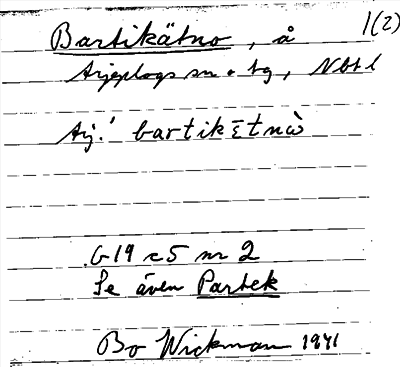 Bartikätno, å 1(2)
Arjeplogs sn o tg, Nbt l
Arj.! bartikĒtnὼ
G19 c5 nr 2
Se även Partek
Bo Wickman 1941